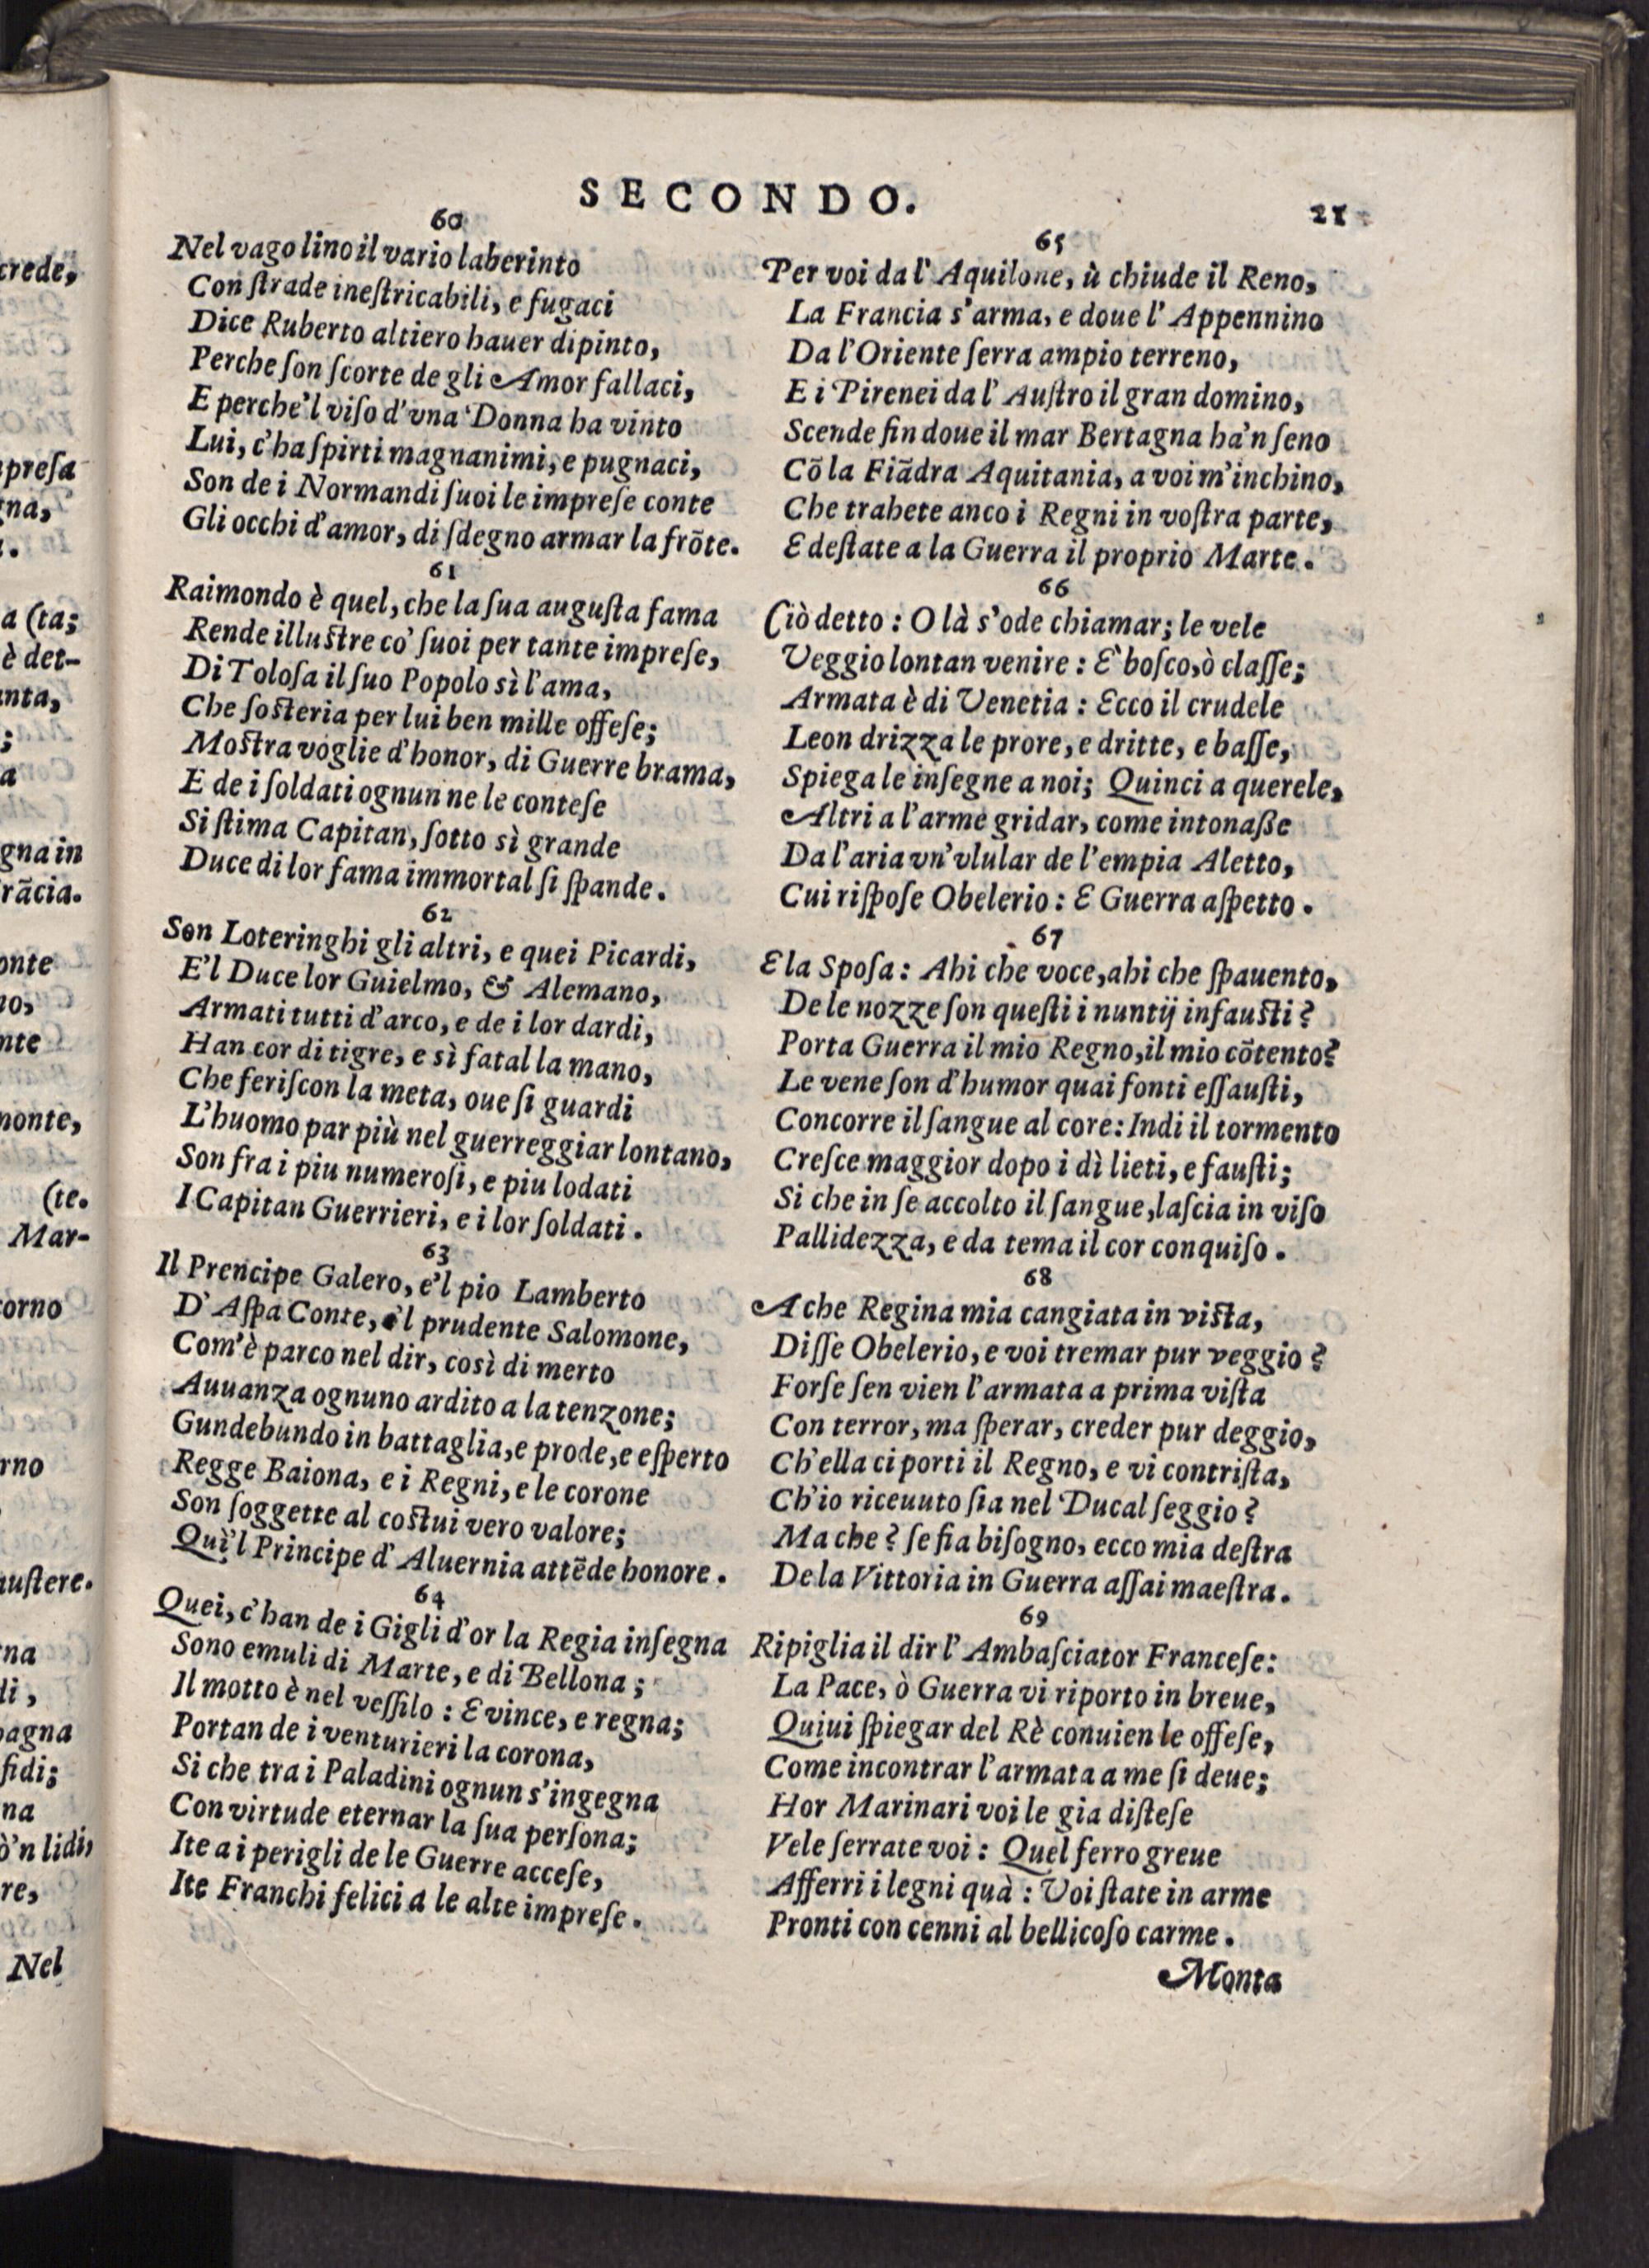 crede,
presa
gna,
a (ta;
è det-
nta,
;
a
gna in
rãcia.
onte
no,
nte
monte,
(te.
Mar-
torno
rno
austere.
na
di,
pagna
fidi;
na
ò'n lidi,
re,
Nel
SECONDO.
21
60
Nel vago lino il vario laberinto
Con ſtrade ineſtricabili, e fugaci
Dice Ruberto altiero hauer dipinto,
Perche ſon ſcorte de gli Amor fallaci,
E perche'l viſo d'vna Donna ha vinto
Lui, c'ha ſpirti magnanimi, e pugnaci,
Son de i Normandi ſuoi le impreſe conte
Gli occhi d'amor, di ſdegno armar la frõte.
61
Raimondo è quel, che la ſua auguſta fama
Rende illuſtre co' ſuoi per tante impreſe,
Di Toloſa il ſuo Popolo sì l'ama,
Che ſoſteria per lui ben mille offeſe;
Moſtra voglie d'honor, di Guerre brama,
E de i ſoldati ognun ne le conteſe
Si ſtima Capitan, ſotto sì grande
Duce di lor fama immortal ſi ſpande.
62
Son Loteringhi gli altri, e quei Picardi,
E'l Duce lor Guielmo, & Alemano,
Armati tutti d'arco, e de i lor dardi,
Han cor di tigre, e sì fatal la mano,
Che feriſcon la meta, oue ſi guardi
L'huomo par più nel guerreggiar lontano,
Son fra i piu numeroſi, e piu lodati
I Capitan Guerrieri, e i lor ſoldati.
63
Il Prencipe Galero, e'l pio Lamberto
D'Aſpa Conte, e'l prudente Salomone,
Com'è parco nel dir, così di merto
Auuanza ognuno ardito a la tenzone;
Gundebundo in battaglia, e prode, e eſperto
Regge Baiona, e i Regni, e le corone
Son ſoggette al coſtui vero valore;
Quì'l Principe d'Aluernia attẽde honore.
64
Quei, c'han de i Gigli d'or la Regia inſegna
Sono emuli di Marte, e di Bellona;
Il motto è nel veſſilo: E vince, e regna;
Portan de i venturieri la corona,
Si che tra i Paladini ognun s'ingegna
Con virtude eternar la ſua perſona;
Ite a i perigli de le Guerre acceſe,
Ite Franchi felici a le alte impreſe.
65
Per voi da l'Aquilone, ù chiude il Reno,
La Francia s'arma, e doue l'Appennino
Da l'Oriente ſerra ampio terreno,
E i Pirenei da l'Auſtro il gran domino,
Scende fin doue il mar Bertagna ha'n ſeno
Cõ la Fiãdra Aquitania, a voi m'inchino,
Che trahete anco i Regni in voſtra parte,
E deſtate a la Guerra il proprio Marte.
66
Ciò detto: O là s'ode chiamar; le vele
Veggio lontan venire: E' boſco, ò claſſe;
Armata è di Venetia: Ecco il crudele
Leon drizza le prore, e dritte, e baſſe,
Spiega le inſegne a noi; Quinci a querele,
Altri a l'arme gridar, come intonaße
Da l'aria vn'vlular de l'empia Aletto,
Cui riſpoſe Obelerio: E Guerra aſpetto.
67
E la Spoſa: Ahi che voce, ahi che ſpauento,
De le nozze ſon queſti i nuntij infauſti?
Porta Guerra il mio Regno, il mio cõtento?
Le vene ſon d'humor quai fonti eſſauſti,
Concorre il ſangue al core: Indi il tormento
Creſce maggior dopo i dì lieti, e fauſti;
Si che in ſe accolto il ſangue, laſcia in viſo
Pallidezza, e da tema il cor conquiſo.
68
A che Regina mia cangiata in viſta,
Diſſe Obelerio, e voi tremar pur veggio?
Forſe ſen vien l'armata a prima viſta
Con terror, ma ſperar, creder pur deggio,
Ch'ella ci porti il Regno, e vi contriſta,
Ch'io riceuuto ſia nel Ducal ſeggio?
Ma che? ſe fia biſogno, ecco mia deſtra
De la Vittoria in Guerra aſſai maeſtra.
69
Ripiglia il dir l'Ambaſciator Franceſe:
La Pace, ò Guerra vi riporto in breue,
Quiui ſpiegar del Rè conuien le offeſe,
Come incontrar l'armata a me ſi deue;
Hor Marinari voi le gia diſteſe
Vele ſerrate voi: Quel ferro greue
Afferri i legni quà: Voi ſtate in arme
Pronti con cenni al bellicoſo carme.
Monta